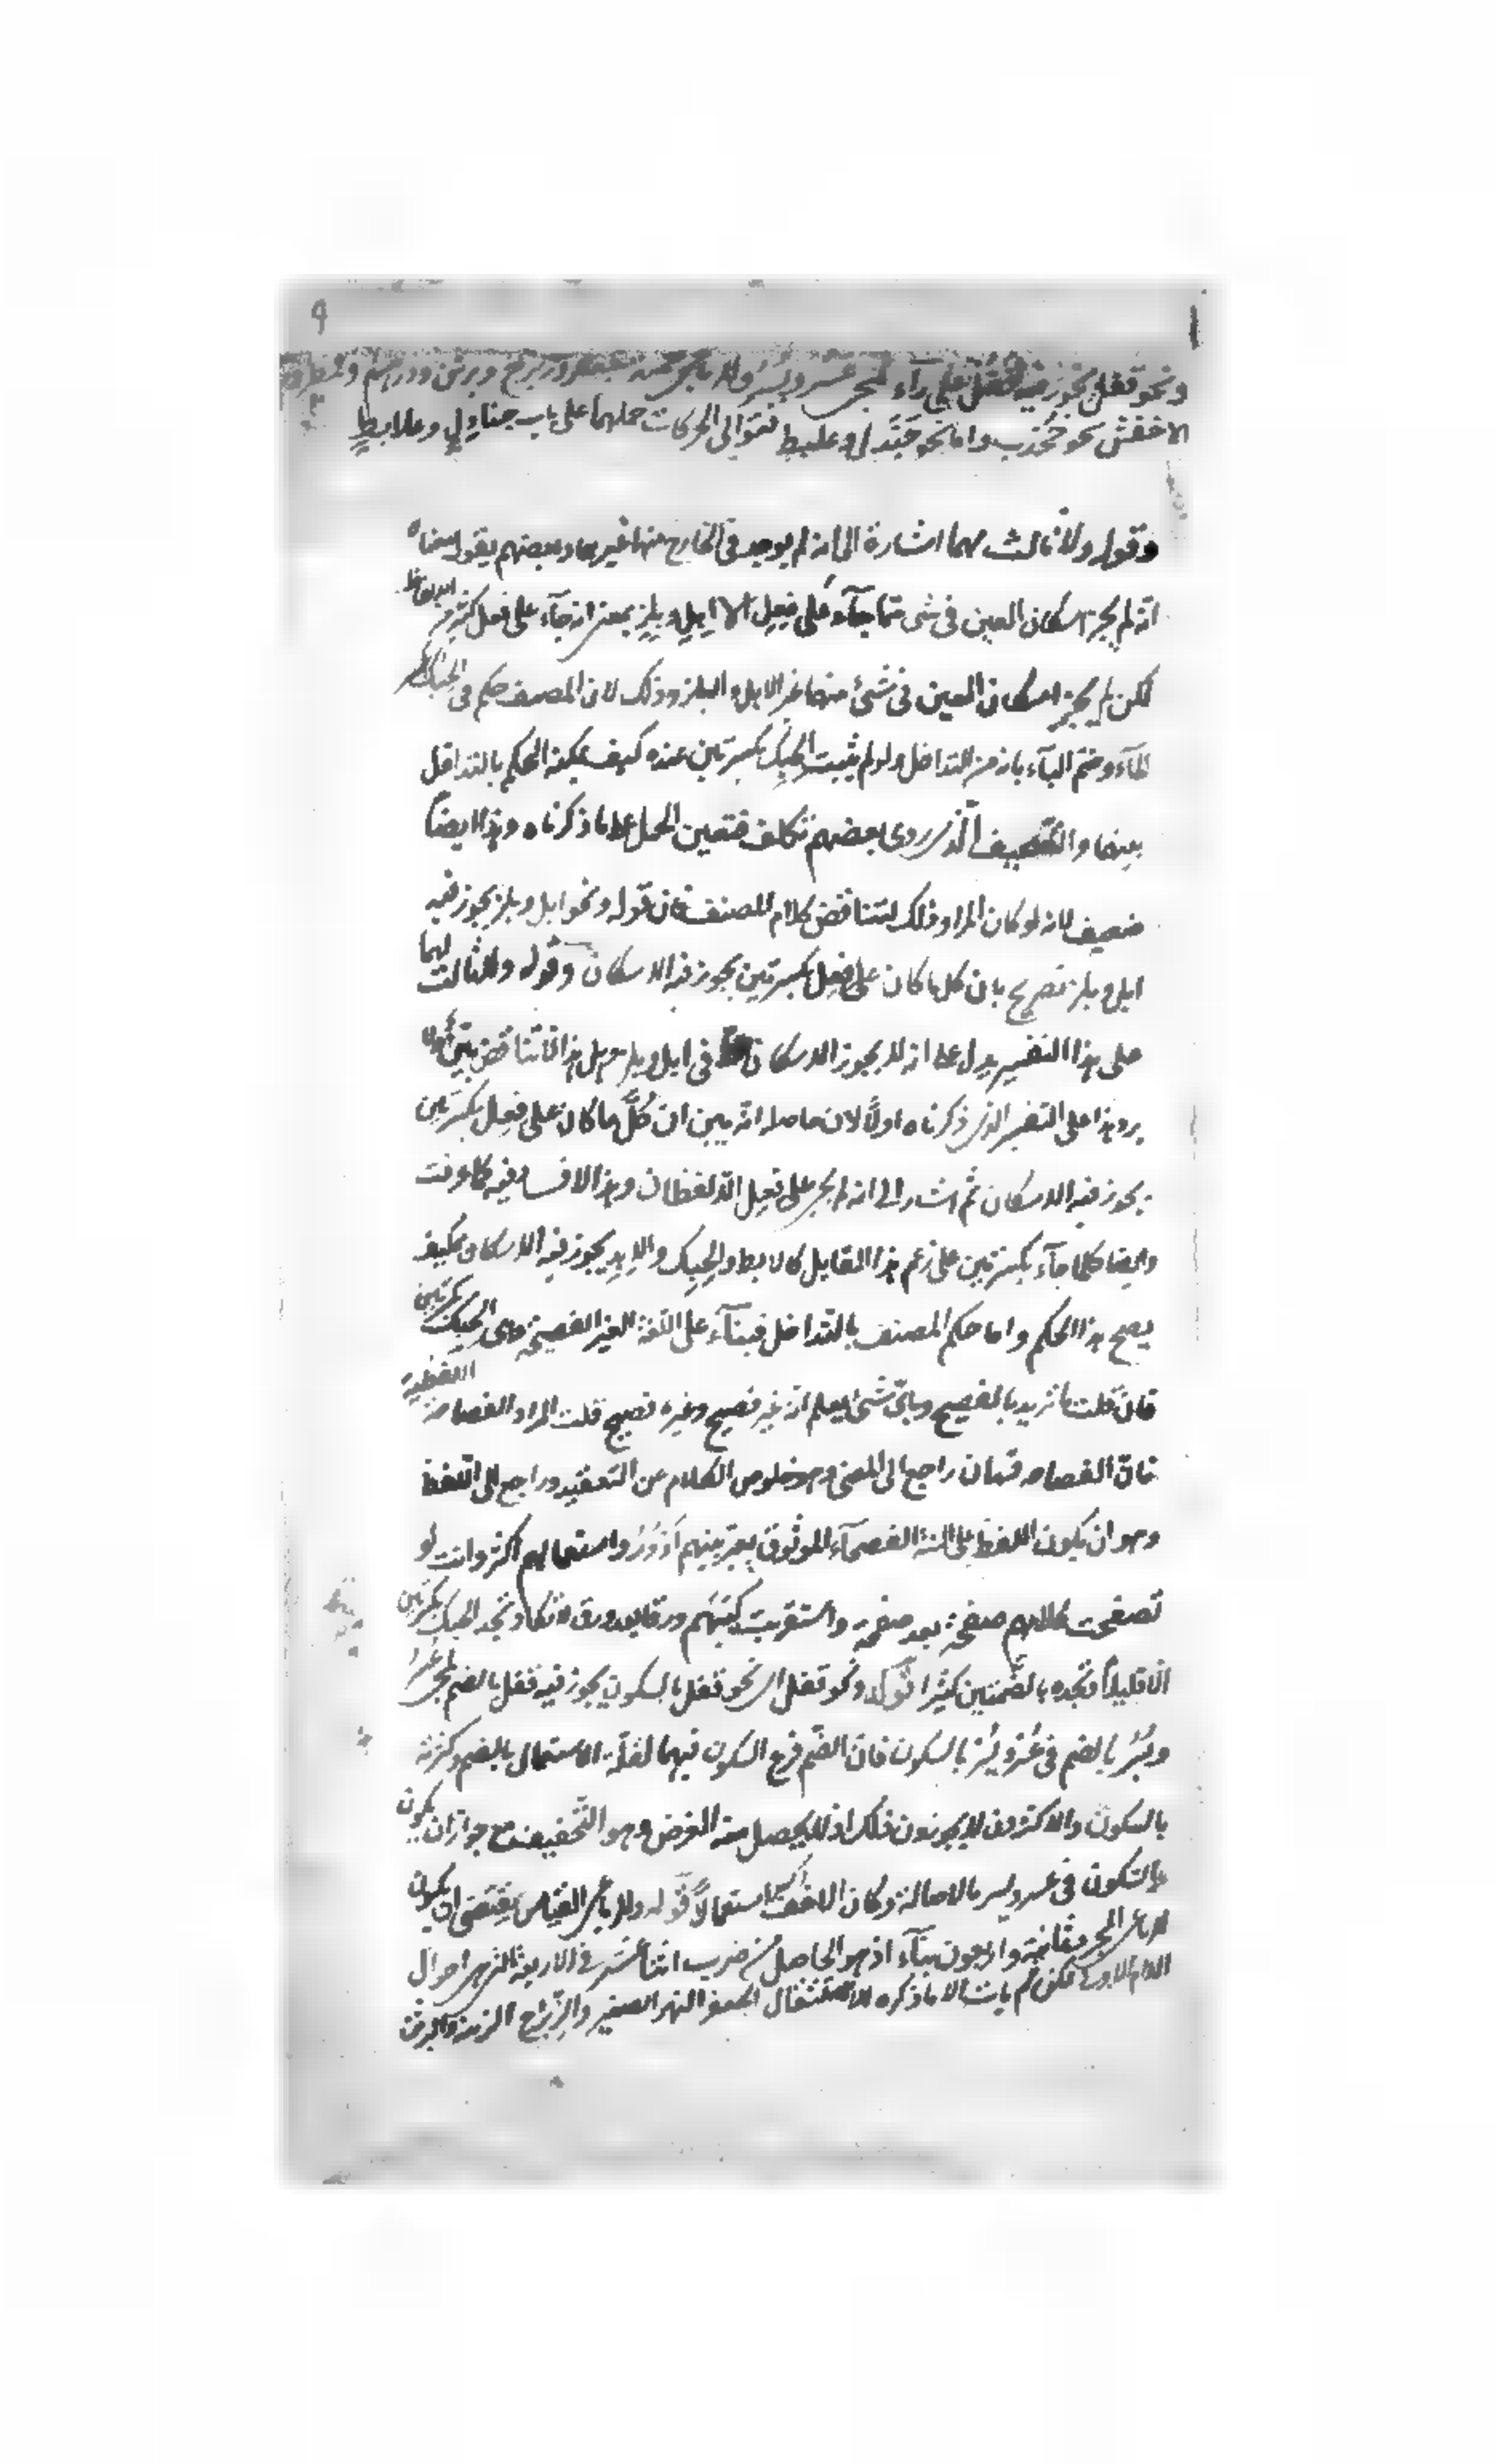 ٩
ونحو قفل يجوز فيه قُفُل على رأى لمجئ عسر ويسر وللرباعى خمسة جعفر وزبرج وبرثن ودرهم وقمطر وزاد
الاخفش نحو جُخْدَب واما نحو جَنَدِل وعلبط فتوالى الحركات حملهما على باب جنادِل وعلابط
وقوله ولا ثالث لهما اشارة الى انه لم يوجد فى الخارج منها غيرهما وبعضهم يقول معناه
انه لم يجز اسكان العين فى شئ مما جآء على فِعِل الا ابِل وبِلِز بمعنى انه جآء على فعل كثير من الالفاظ
لكن لم يجز اسكان العين فى شئ منها غير الابل والبلز وذلك لان المصنف حكم فى الحبك بكسر
الحآء وضم البآء بانه من التداخل ولو لم يثبت الحِبِك بكسرتين عنده كيف يمكنه الحكم بالتداخل
بينهما والتضعيف الذى روى بعضهم تكلف فتعين الحمل على ما ذكرناه وهذا ايضاً
ضعيف لانه لو كان المراد ذلك لتناقض كلام المصنف فان قوله ونحو ابل وبلز يجوز فيه
ابل وبلز تصريح بان كل ما كان على فِعِل بكسرتين يجوز فيه الاسكان وقوله ولا ثالث لهما
على هذا التفسير يدل على انه لا يجوز الاسكان الا فى ابل وبلز وهل هذا الا تناقض بيّن ولا
يرد هذا على التفسير الذى ذكرناه اولاً لان حاصله انه بين ان كلَّ ما كان على فِعِل بكسرتين
يجوز فيه الاسكان ثم اشار الى انه لم يجئ على فِعِل الا لفظان وهذا لا فساد فيه كما عرفت
وايضا كلما جآء بكسرتين على زعم هذا القايل كالابط والحِبِك والابِد يجوز فيه الاسكان فكيف
يصح هذا الحكم واما حكم المصنف بالتداخل فبنآء على اللغة الغير الفصيحة وهى الحبك بكسرتين
فان قلت ما تريد بالفصيح وباىّ شئ يعلم انه غير فصيح وغيره فصيح قلت المراد الفصاحة اللفظية
فانّ الفصاحة قسمان راجع الى المعنى وهو خلوص الكلام عن التعقيد وراجع الى اللفظ
وهو ان يكون اللفظ على السنة الفصحآء الموثوق بعربيتهم اَدْوَرُ واستعمالهم اكثر وانت لو
تصفحت كلامهم صفحة بعد صفحة واستقريت كتبهم ورقا بعد ورق لا تكاد تجد الحبك بكسرتين
الا قليلاً وتجده بالضمتين كثيرا قوله ونحو قفل اى نحو قفل بالسكون يجوز فيه قفل بالضم لمجئ عُسُر
ويُسُر بالضم فى عُسْر ويُسْر بالسكون فان الضم فرع السكون فيهما لقلة الاستعمال بالضم وكثرته
بالسكون والاكثرون لا يجوزون ذلك اذ لا يحصل منه الغرض وهو التخفيف مع جواز ان يكون
بالسكون فى عسر ويسر بالاصالة وكان الاخف اكثر استعمالاً قوله وللرباعى القياس يقتضى ان يكون
للرباعى المجرد ثمانية واربعون بنآء اذ هو الحاصل من ضرب اثنا عشر فى الاربعة التى هى احوال
اللام الاولى لكن لم يات الا ما ذكره للاستثقال الجعفر النهر الصغير والزبرج الزينة والبرثن